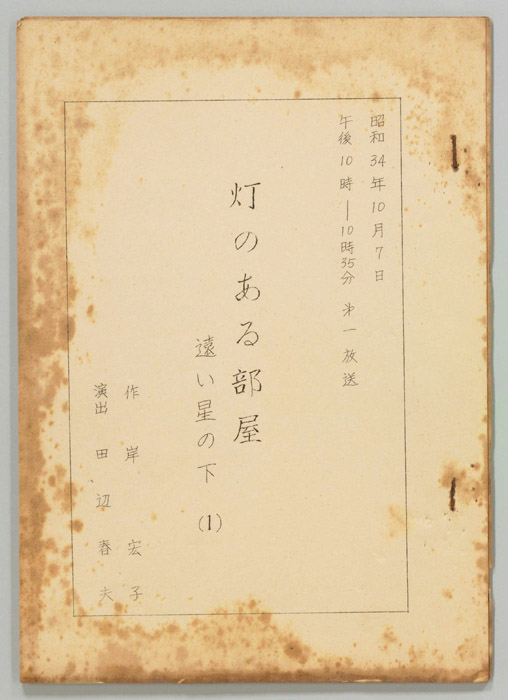 昭和34年10月7日
午後10時―10時35分 第一放送
灯のある部屋
遠い星の下 (1)
作 岸宏子
演出 田辺春夫